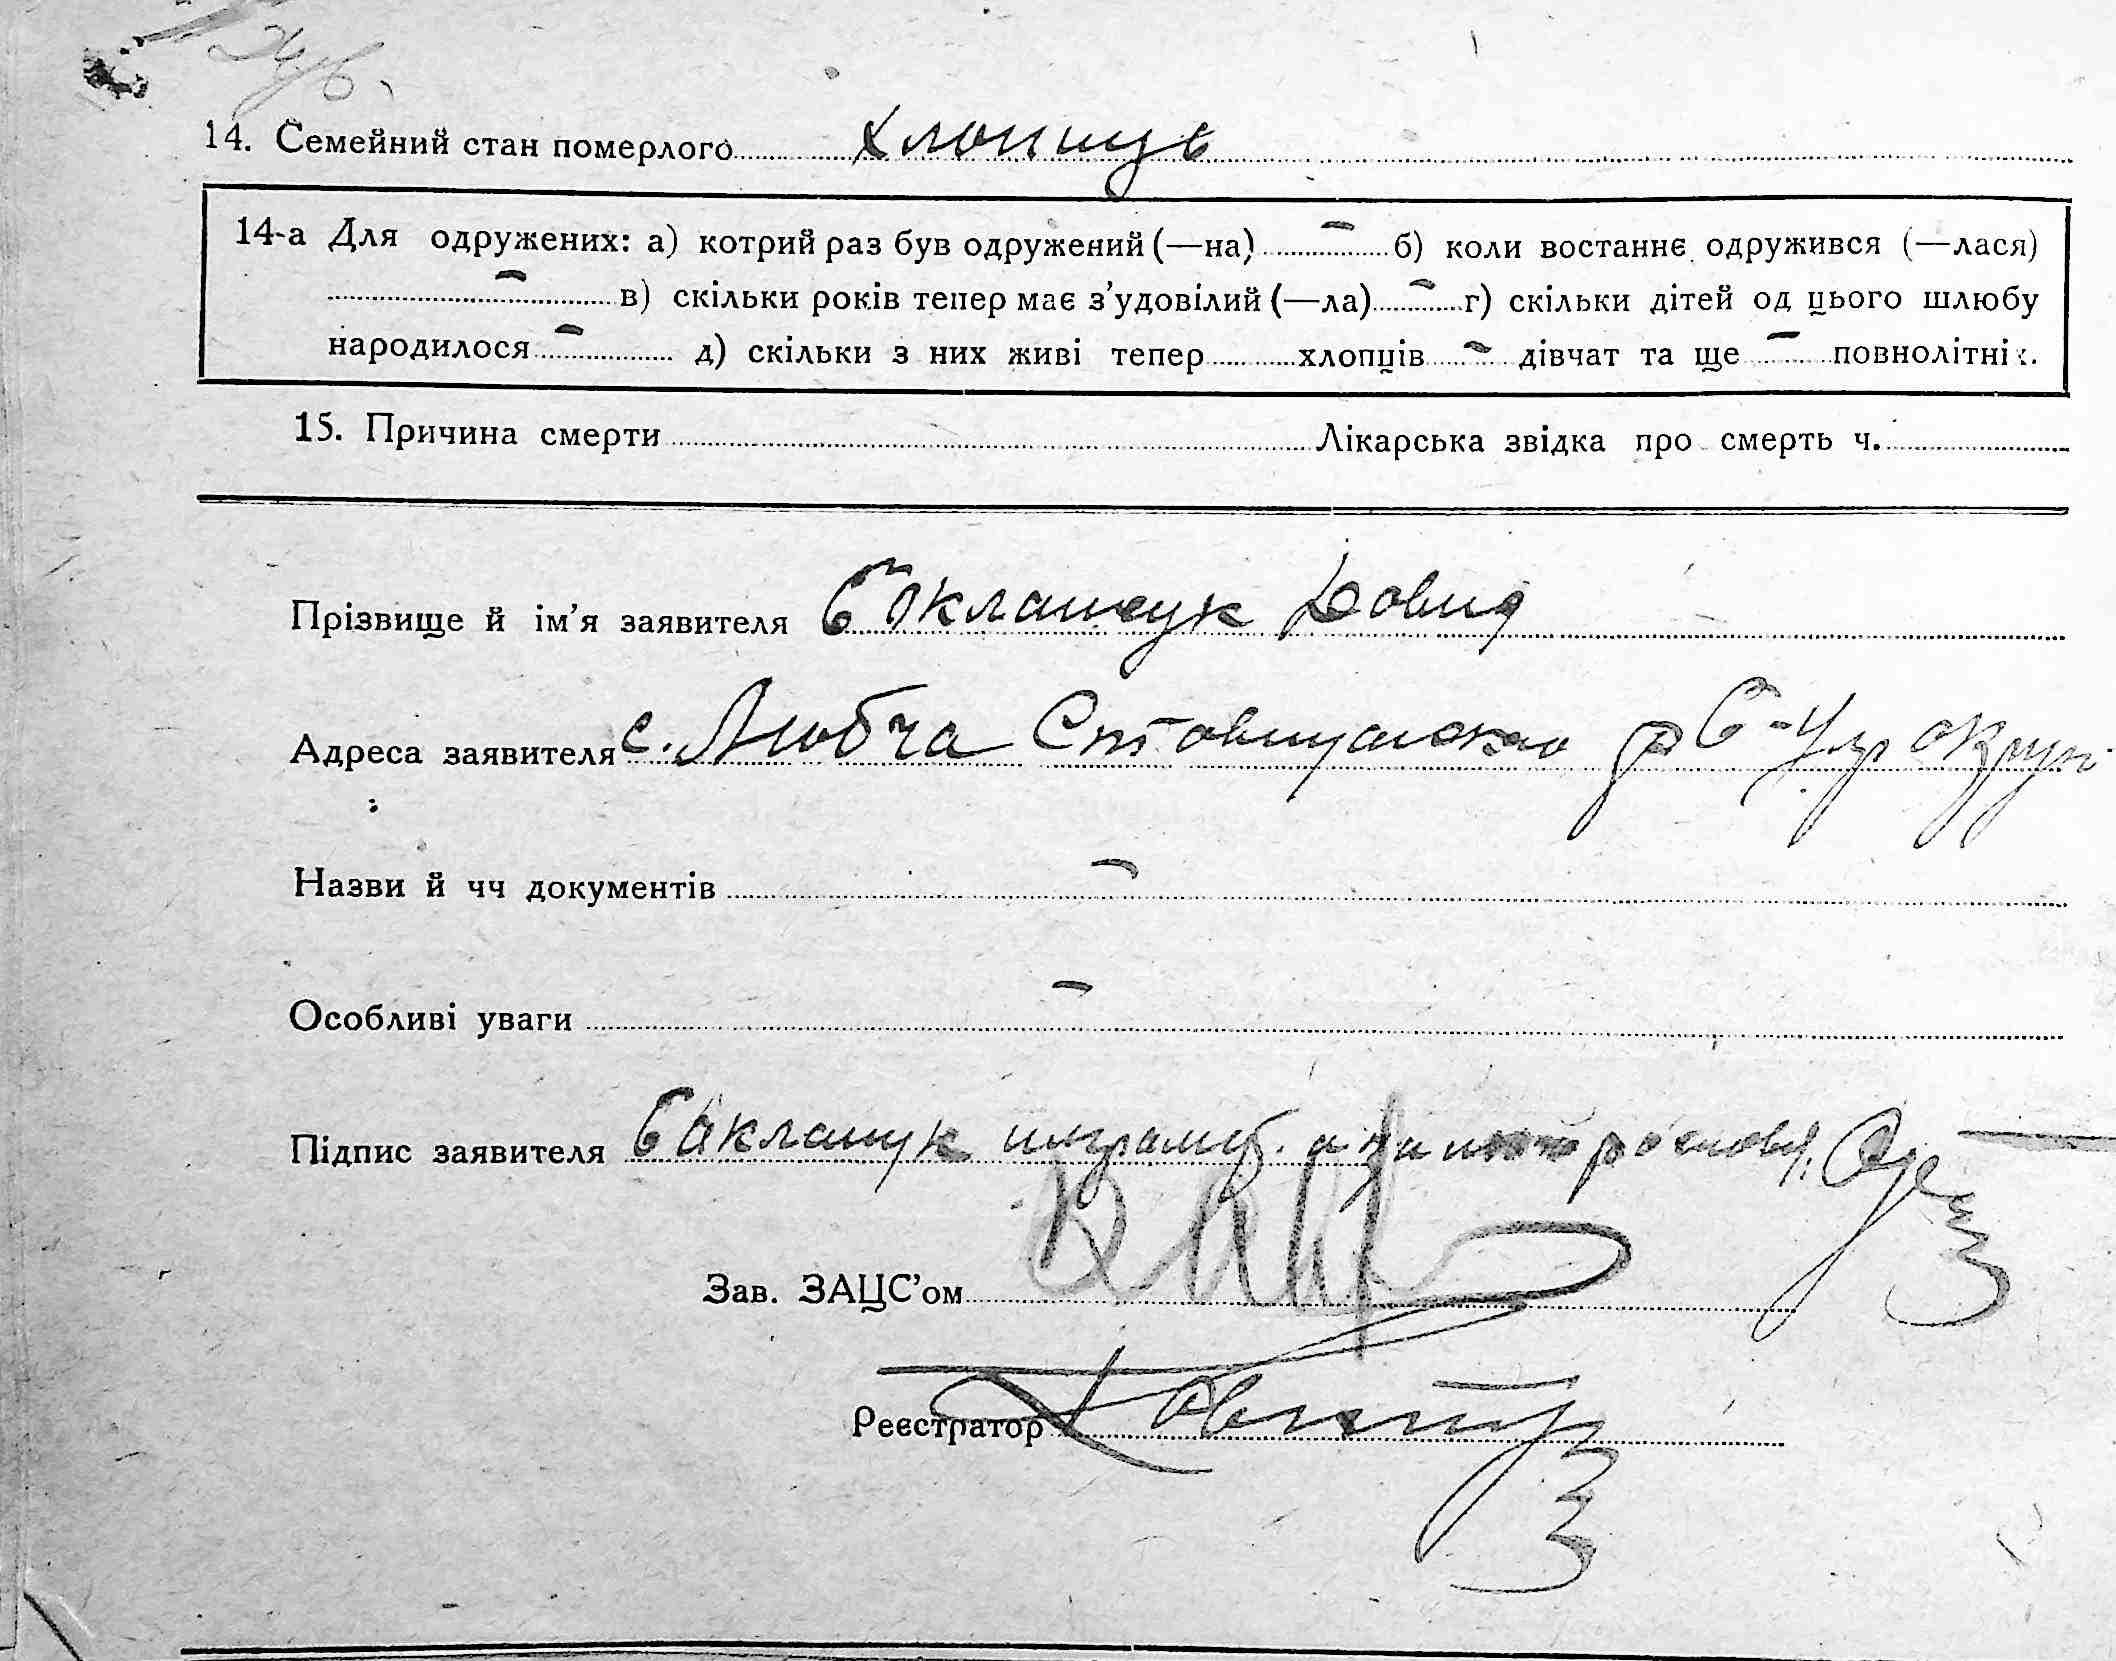 14. Семейний стан померлого хлопиць
14-а Для одружених: а) котрий раз був одружений (—на) — б) коли востаннє одружився (—лася)
— в) скільки років тепер має з’удовілий (—ла) — г) скільки дітей од цього шлюбу
народилося — д) скільки з них живі тепер хлопців — дівчат та ще — повнолітніх.
15. Причина смерти Лікарська звідка про смерть ч.
Прізвище й ім’я заявителя Довид
Адреса заявителя с. Любча округ
Назви й чч документів —
Особливі уваги —
Підпис заявителя
Зав. ЗАЦС’ом
Реєстратор